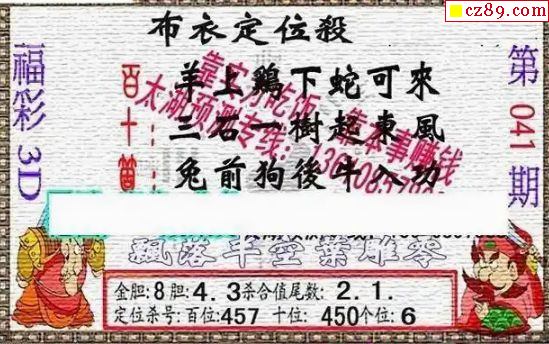 cz89.com
布衣定位殺
福彩3D
第041期
百十個
羊上鷄下蛇可來
三石一樹起東風
兔前狗後牛入功
靠实力吃饭 靠本事赚钱
太湖预测专线:
飄落半空葉雕零
金胆:8胆:4.3杀合值尾数:2.1.
定位杀号:百位:457 十位:450个位:6